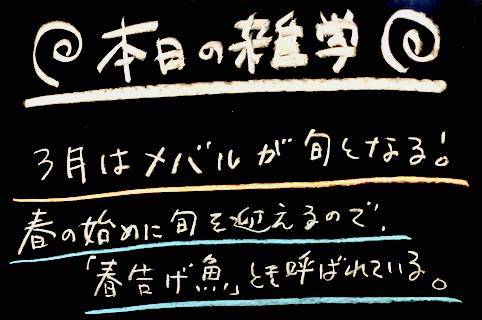 本日の雑学
3月はメバルが旬となる!
春の始めに旬を迎えるので、
「春告げ魚」とも呼ばれている。